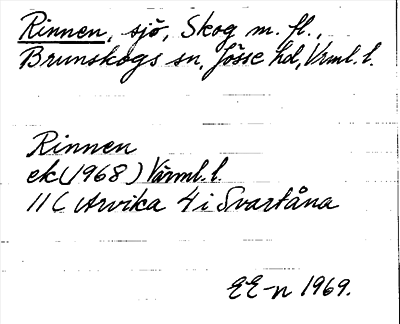 Rinnen, sjö, Skog m. fl.,
Brunskogs sn, Jösse hd, Vrml. l.
Rinnen
ek (1968) Värml. l.
11 C Arvika 4 i Svartåna
EE-n 1969.